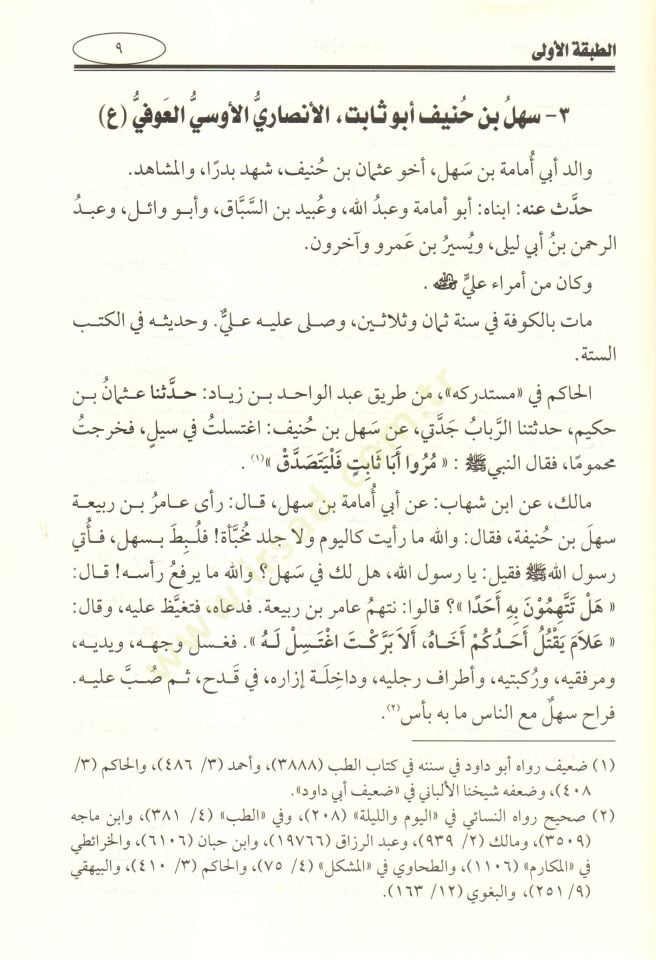 الطبقة الأولى
٩
٣- سهلُ بن حُنيف أبو ثابت، الأنصاريُّ الأوسيُّ العَوفيُّ (ع)
والد أبي أُمامة بن سَهل، أخو عثمان بن حُنيف، شهد بدرًا، والمشاهد.
حدَّث عنه: ابناه: أبو أمامة وعبدُ الله، وعُبيد بن السَّبَّاق، وأبو وائل، وعبدُ
الرحمن بنُ أبي ليلى، ويُسيرُ بن عَمرو وآخرون.
وكان من أمراء عليٍّ ﵁ .
مات بالكوفة في سنة ثمان وثلاثين، وصلى عليه عليٌّ. وحديثه في الكتب
الستة.
الحاكم في «مستدركه»، من طريق عبد الواحد بن زياد: حدَّثنا عثمانُ بن
حكيم، حدثتنا الرَّبابُ جَدَّتي، عن سَهل بن حُنيف: اغتسلتُ في سيلٍ، فخرجتُ
محمومًا، فقال النبي ﷺ : « مُرُوا أَبَا ثَابِتٍ فَلْيَتَصَدَّقْ »(١) .
مالك، عن ابن شهاب: عن أبي أُمامة بن سهل، قال: رأى عامرُ بن ربيعة
سهلَ بن حُنيفة، فقال: والله ما رأيت كاليوم ولا جلد مُخبَّأة! فلُبِطَ بسهل، فأُتي
رسول الله ﷺ فقيل: يا رسول الله، هل لك في سَهل؟ والله ما يرفعُ رأسه! قال:
« هَلْ تَتَّهِمُوْنَ بِهِ أَحَدًا »؟ قالوا: نتهمُ عامر بن ربيعة. فدعاه، فتغيَّظ عليه، وقال:
« عَلاَمَ يَقْتُلُ أَحَدُكُمْ أَخَاهُ، أَلاَ بَرَّكْتَ اغْتَسِلْ لَـهُ ». فغسل وجهه، ويديه،
ومرفقيه، ورُكبتيه، وأطراف رجليه، وداخِلَة إزاره، في قَدح، ثم صُبَّ عليه.
فراح سهلٌ مع الناس ما به بأس(٢).
(١) ضعيف رواه أبو داود في سننه في كتاب الطب (٣٨٨٨)، وأحمد (٣/ ٤٨٦)، والحاكم (٣/
٤٠٨)، وضعفه شيخنا الألباني في «ضعيف أبي داود».
(٢) صحيح رواه النسائي في «اليوم والليلة» (٢٠٨)، وفي «الطب» (٤/ ٣٨١)، وابن ماجه
(٣٥٠٩)، ومالك (٢/ ٩٣٩)، وعبد الرزاق (١٩٧٦٦)، وابن حبان (٦١٠٦)، والخرائطي
في «المكارم» (١١٠٦)، والطحاوي في «المشكل» (٤/ ٧٥)، والحاكم (٣/ ٤١٠)، والبيهقي
(٩/ ٢٥١)، والبغوي (١٢/ ١٦٣).
www.irsad.com.tr